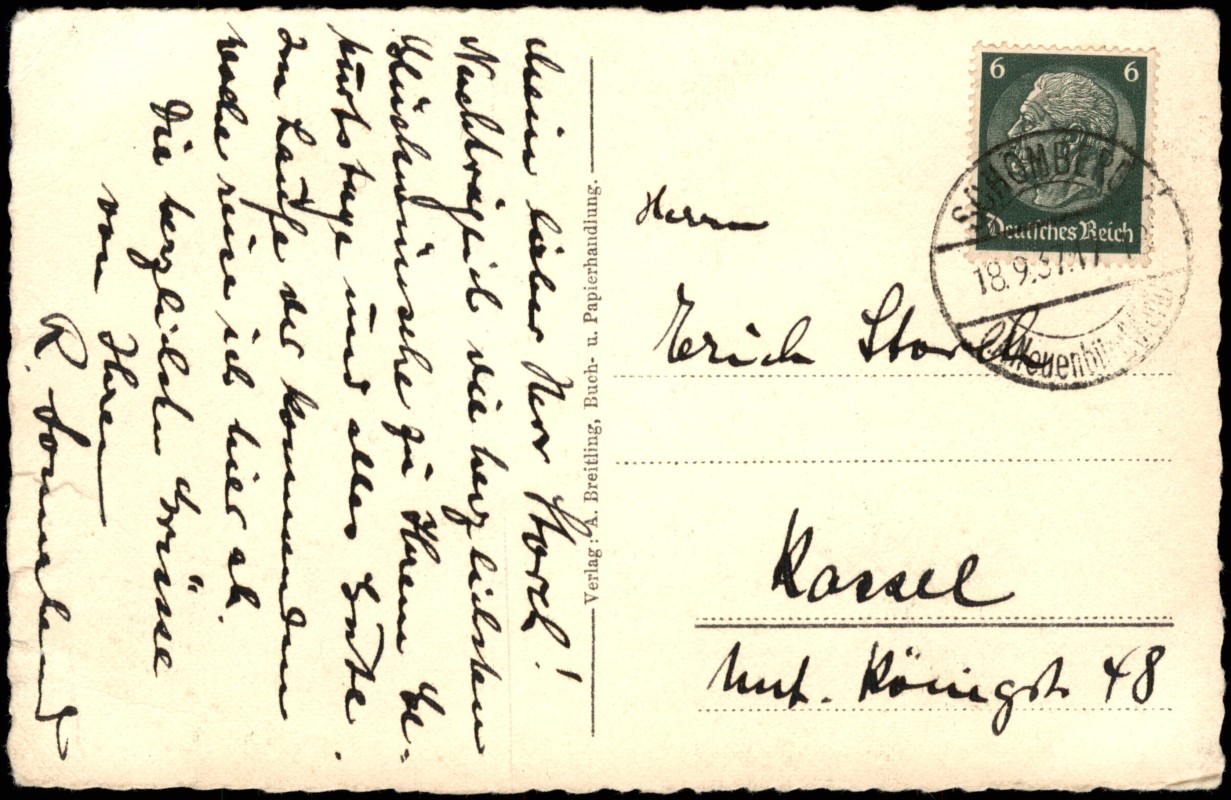 Mein lieber Herr Storch!
Nachträglich die herzlichsten
Glückwünsche zu Ihrem Ge-
burtstage und alles Gute.
Im Laufe der kommenden
Woche reise ich hier ab.
Die herzlichen Grüsse
von Ihrem
R.
Verlag: A. Breitling, Buch- u. Papierhandlung.
6 6
Deutsches Reich
SCHÖMBERG
18.9.37.17
Neuenbürg
Herrn
Erich Storch
Kassel
Unt. Königstr. 48